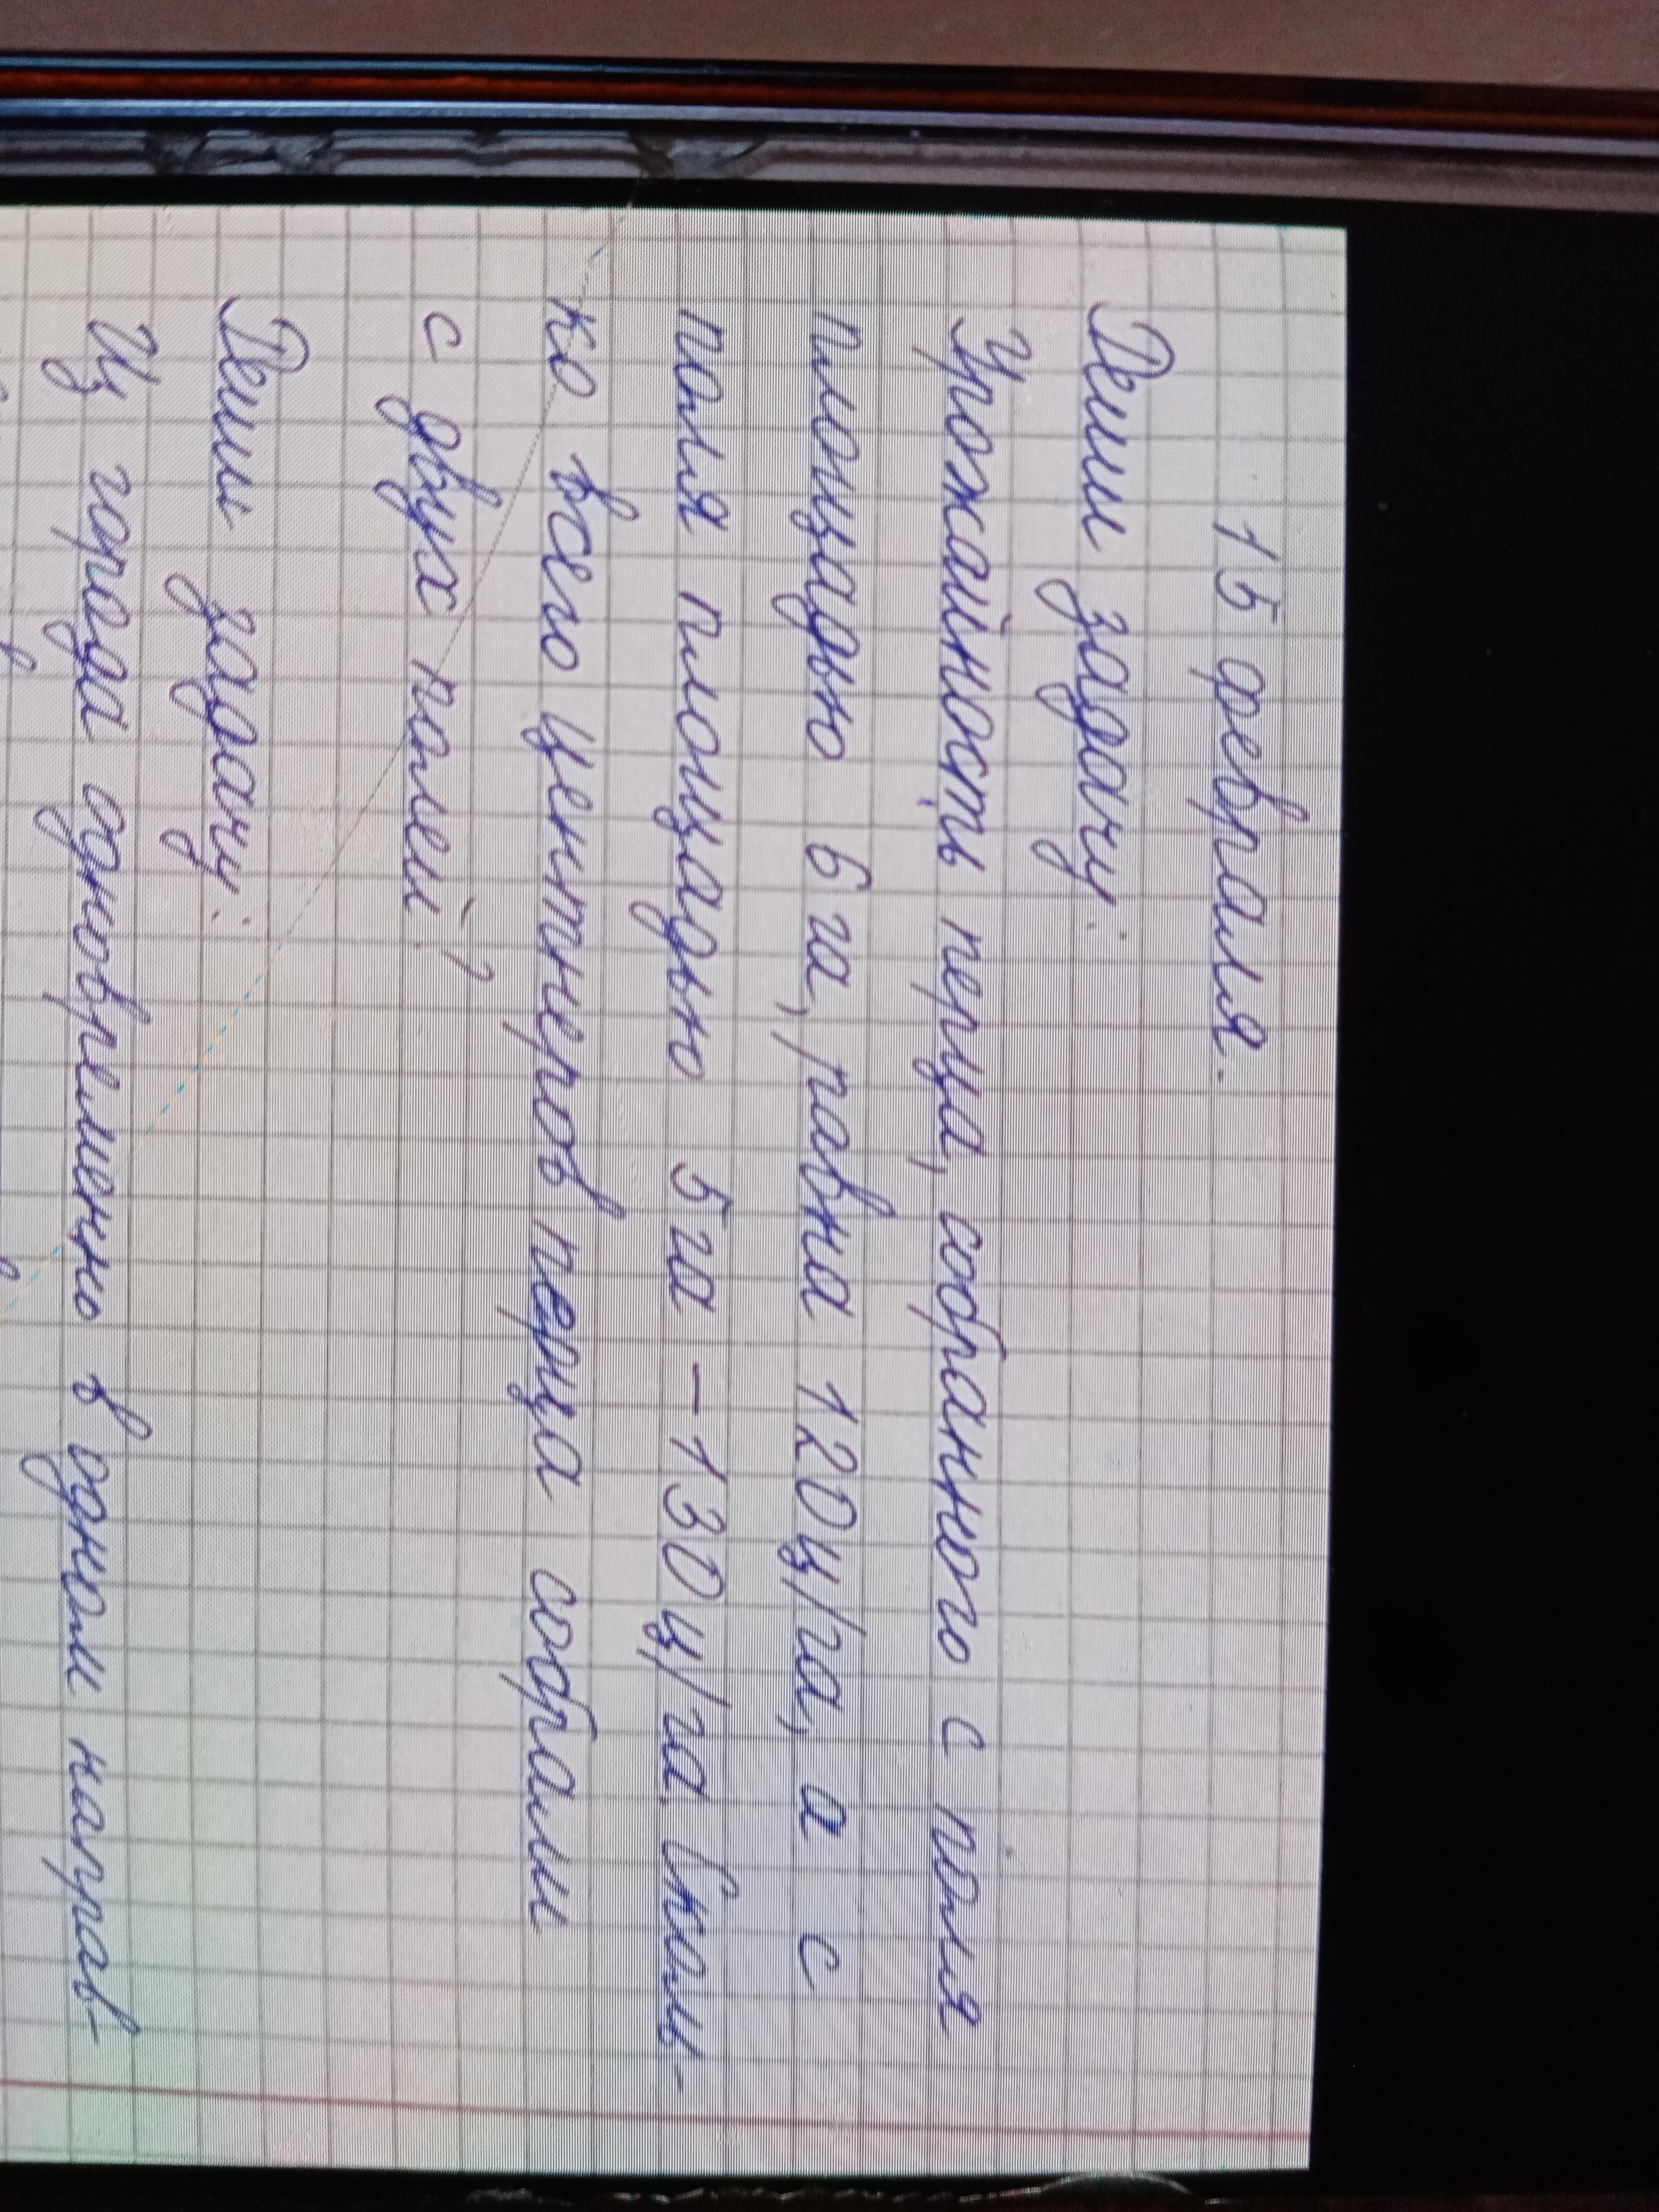 15 февраля.
Реши задачу:
Урожайность перца, собранного с поля
площадью 6 га, равна 120ц/га, а с
поля площадью 5га – 130ц/га. Сколь-
ко всего центнеров перца собрали
с двух полей?
Реши задачу:
Из города одновременно в одном направ-